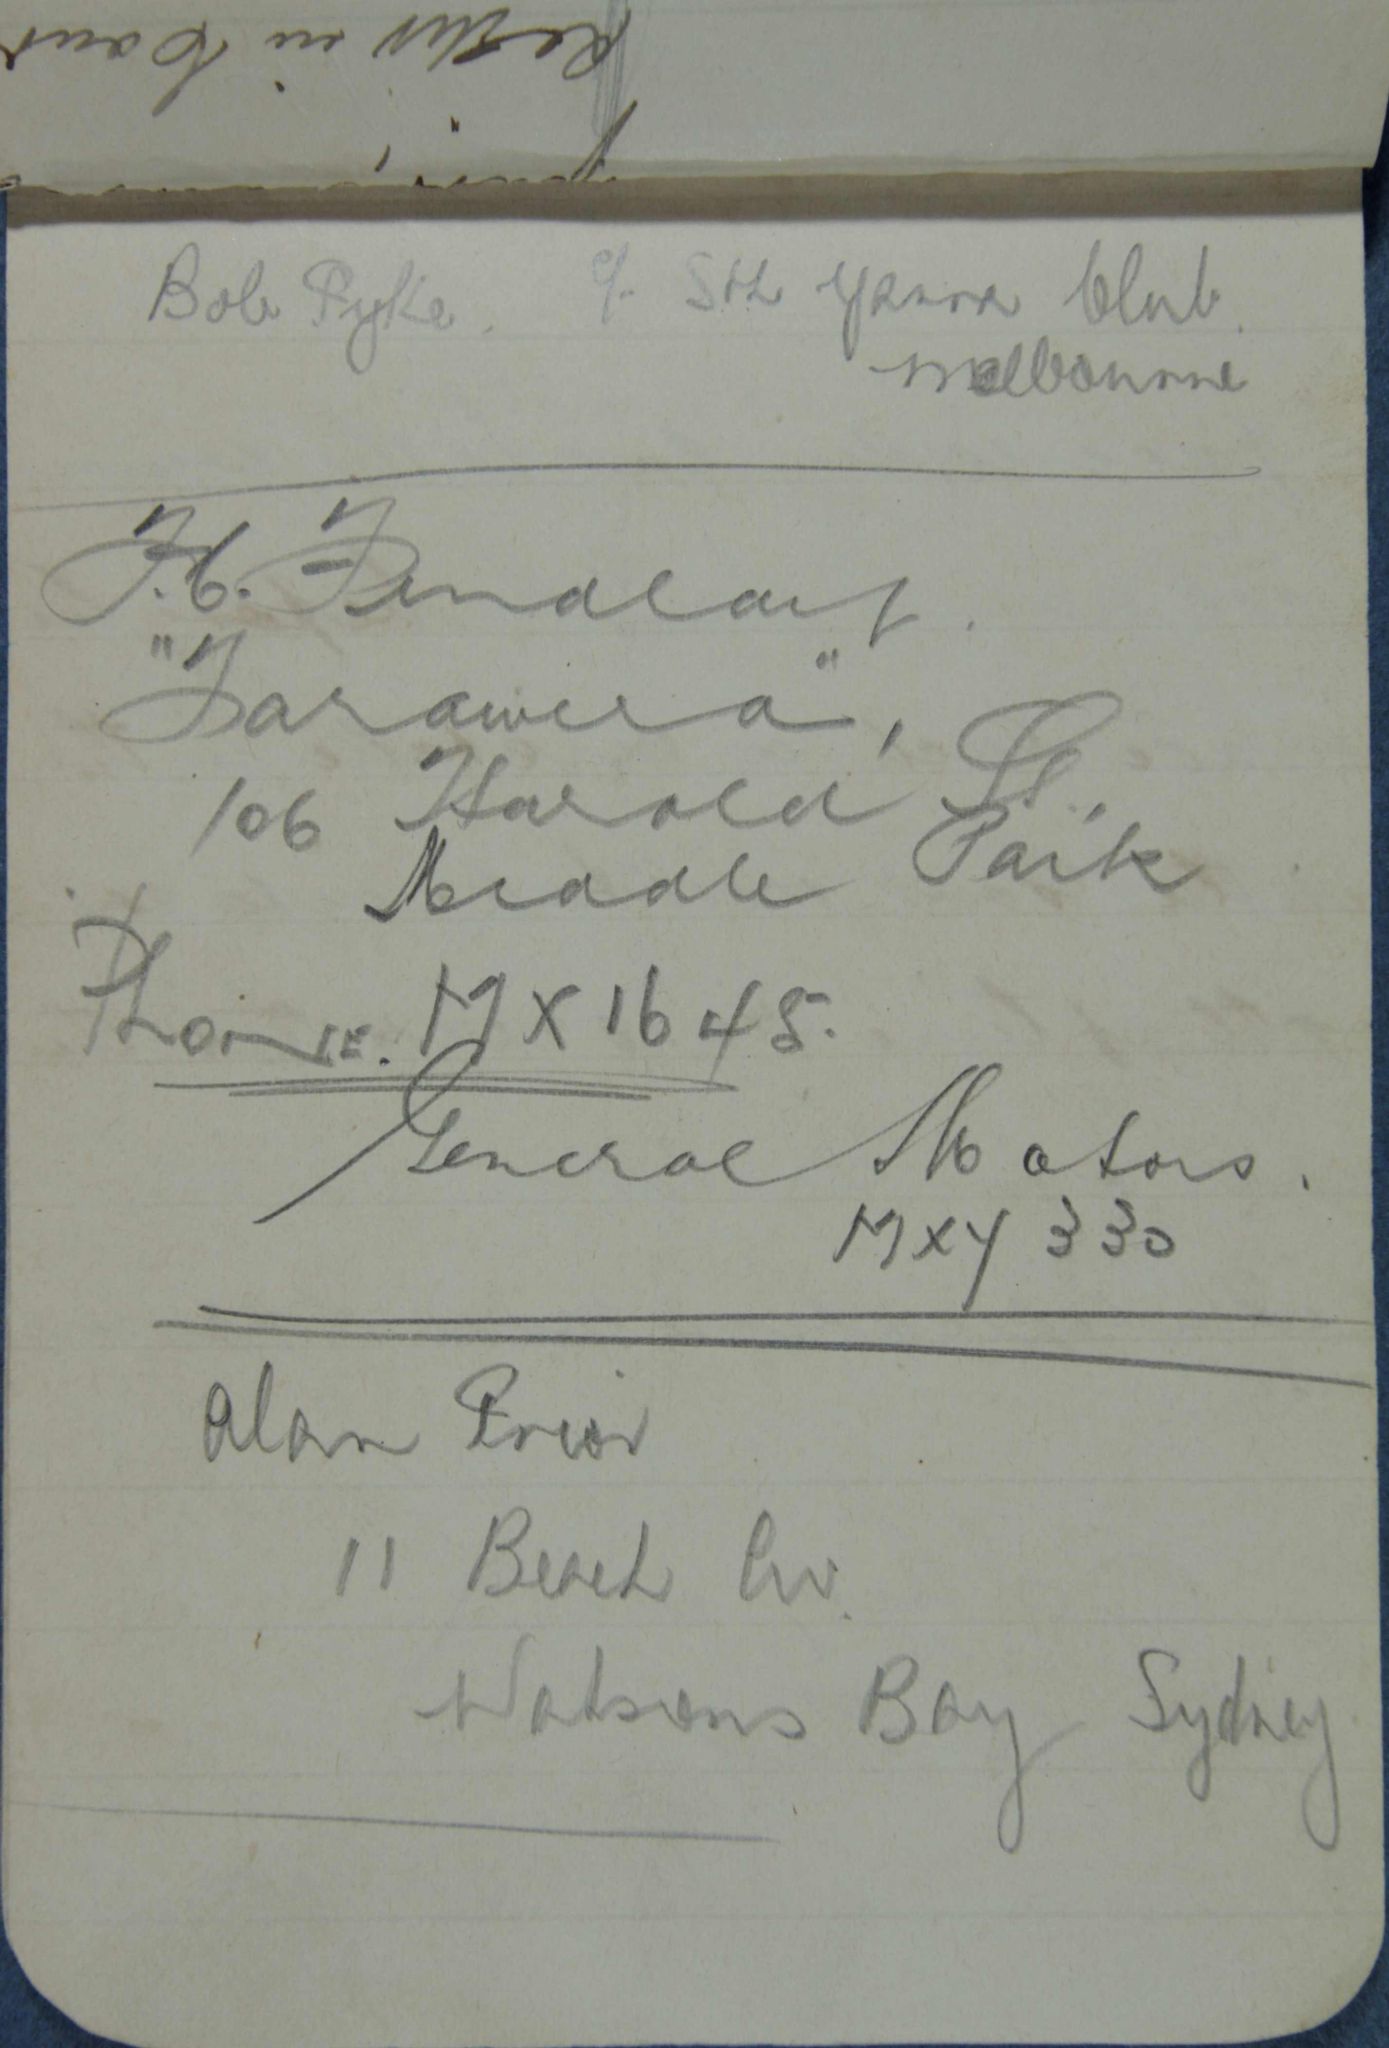 Bob Pyke. c/- Sth Yarra Club.
Melbourne
F.C. Findlay.
"Tarawera",
106 Harold St.,
Middle Park
Phone. MX1645.
General Motors.
MXY 330
Alan Prior
11 Beach Av.
Watsons Bay Sydney